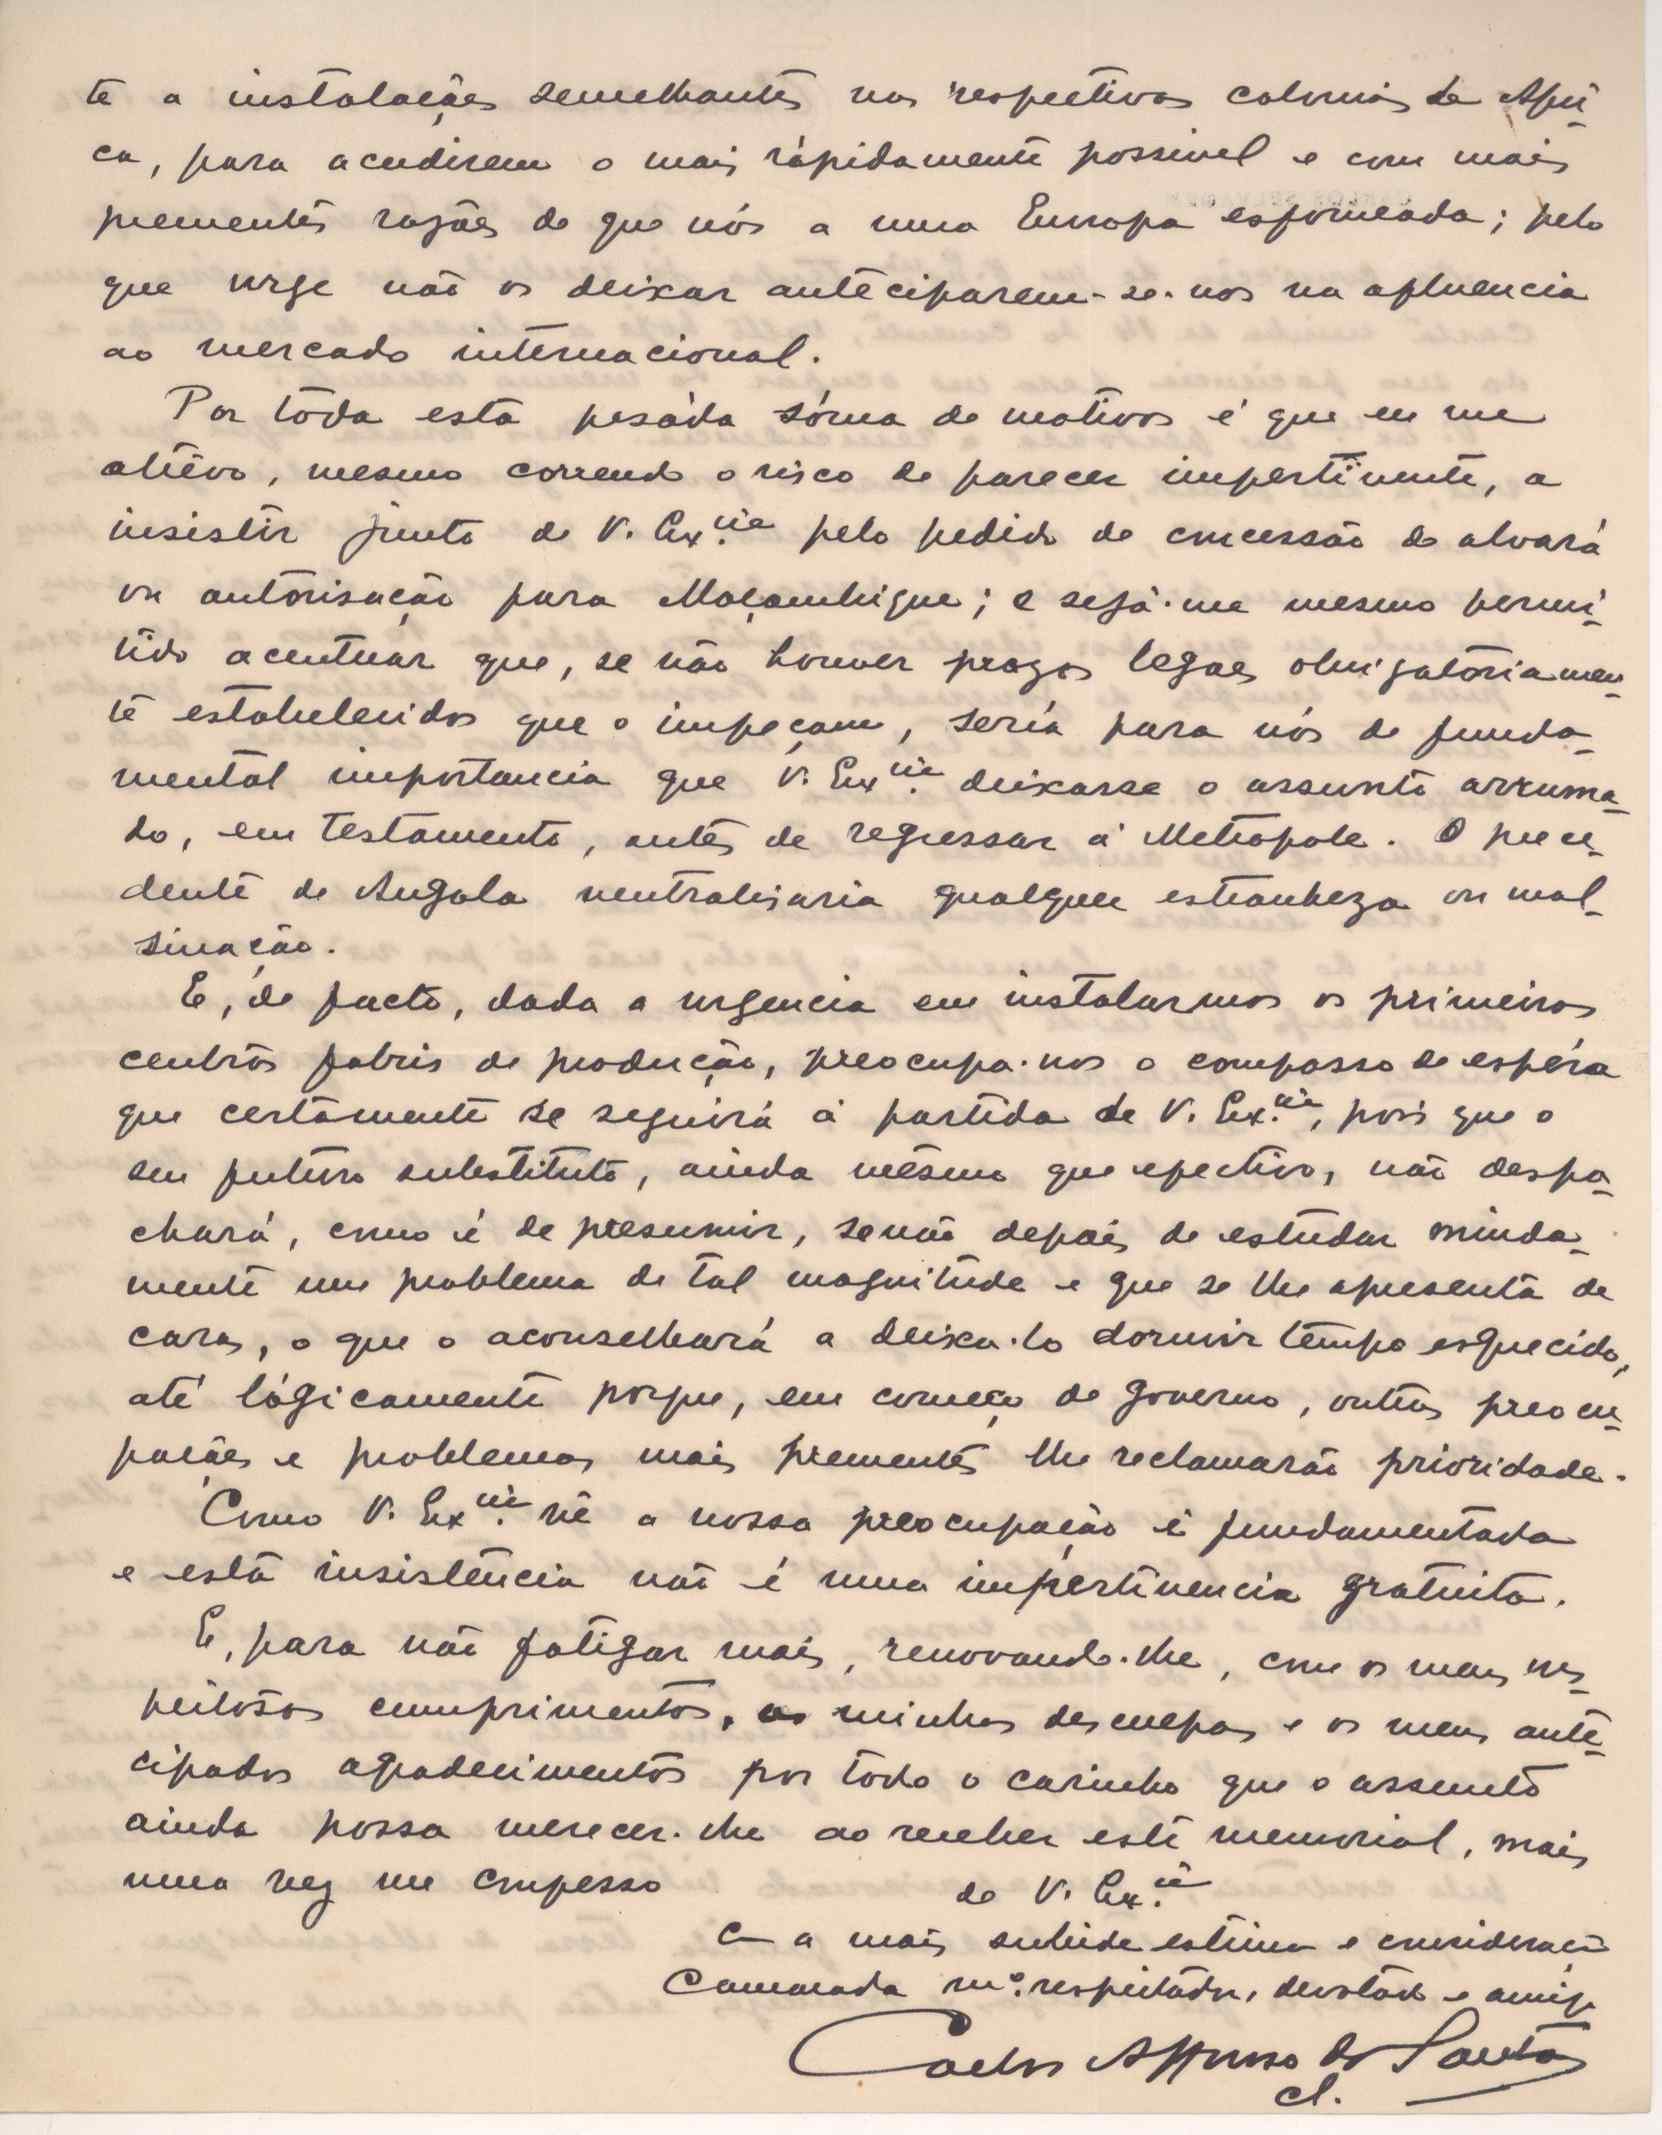 te a instalações semelhantes nas respectivas colonias de Afri-
ca, para acudirem o mais rápidamente possivel e com mais
prementes razões do que nós a uma Europa esfomeada; pelo
que urge não os deixar anteciparem-se-nos na afluencia
ao mercado internacional.
Por toda esta pesáda sôma de motivos é que eu me
atrêvo, mesmo correndo o risco de parecer impertinente, a
insistir junto de V. Ex.cia pelo pedido de concessão de alvará
ou autorisação para Moçambique; e seja-me mesmo permi-
tido acentuar que, se não houver prazos legaes obrigatóriamen-
te estabelecidos que o impeçam, seria para nós de funda-
mental importancia que V. Ex.cia deixasse o assunto arruma-
do, em testamento, antes de regressar á Metropole. O prece-
dente de Angola neutralisaria qualquer estranheza ou mal-
sinação.
E, de facto, dada a urgencia em instalarmos os primeiros
centros fabris de produção, preocupa-nos o compasso de espéra
que certamente se seguirá á partida de V. Ex.cia, pois que o
seu futuro substituto, ainda mesmo que efectivo, não despa-
chará, como é de presumir, senão depois de estudar miuda-
mente um problema de tal magnitude e que se lhe apresenta de
caras, o que o aconselhará a deixa-lo dormir tempo esquecido,
até lógicamente porque, em começo de governo, outras preocu-
pações e problemas mais prementes lhe reclamarão prioridade.
Como V. Ex.cia vê a nossa preocupação é fundamentada
e esta insistência não é uma impertinencia gratuita.
E, para não fatigar mais, renovando-lhe, com os meus res-
peitosos cumprimentos, as minhas desculpas e os meus ante-
cipados agradecimentos por todo o carinho que o assunto
ainda possa merecer-lhe ao receber este memorial, mais
uma vez me confesso
de V. Ex.cia
C a mais subida estima e consideração
Camarada m.º respeitador, devotado e amigo
Carlos Affonso dos Santos
cl.